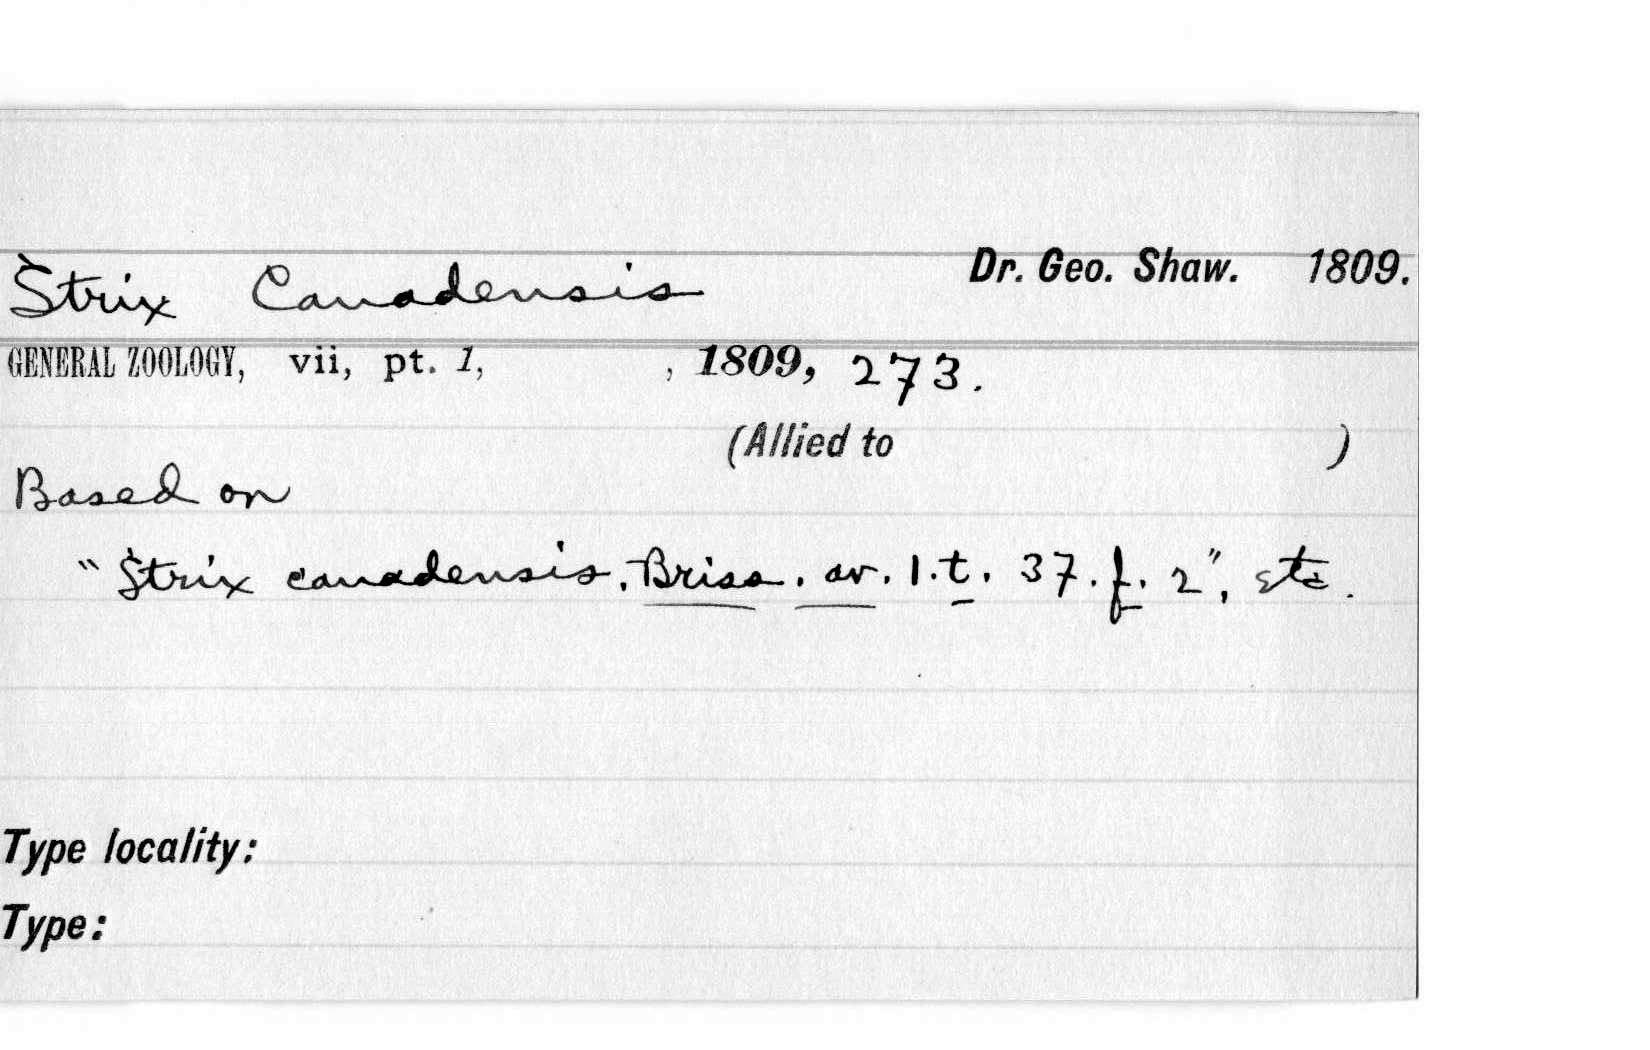 Strix Canadensis Dr. Geo. Shaw. 1809.
GENERAL ZOOLOGY, vii, pt. 1, , 1809, 273.
(Allied to )
Based on
"Strix canadensis. Briss. av. 1. t. 37. f. 2", etc.
Type locality:
Type: